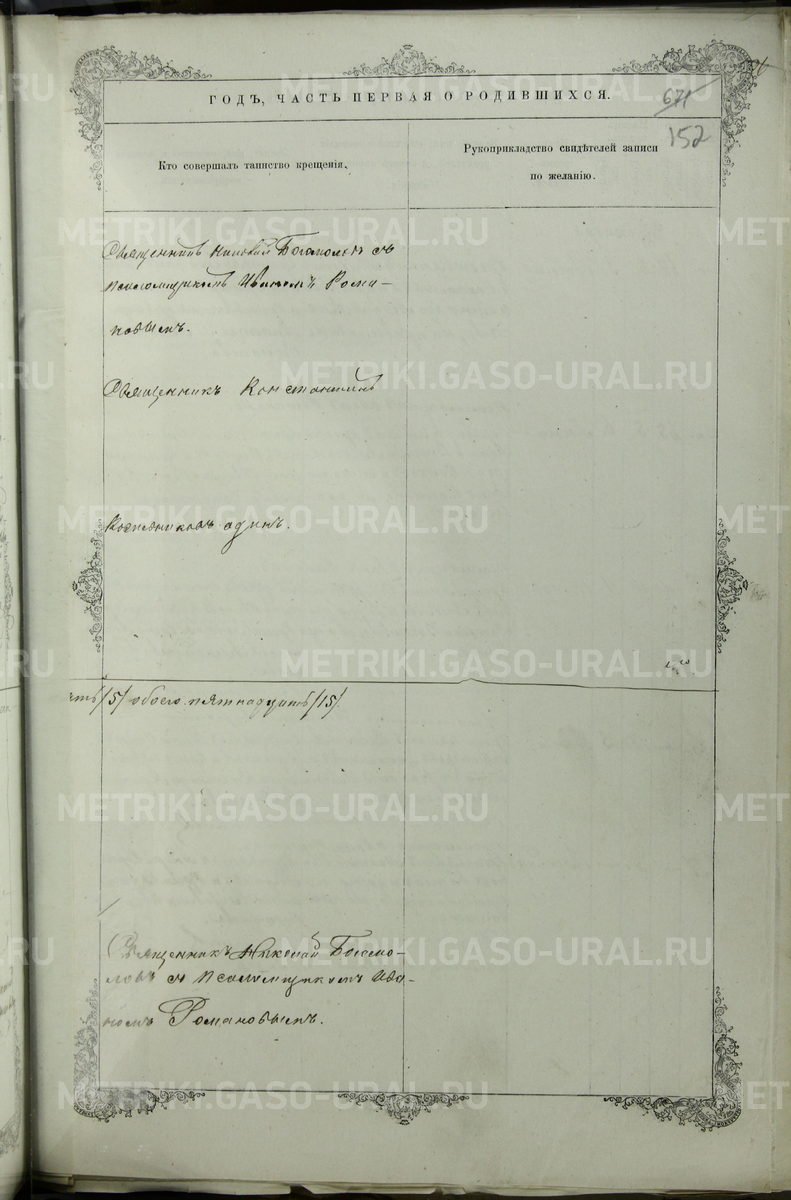 671
ГОДЪ, ЧАСТЬ ПЕРВАЯ О РОДИВШИХСЯ.
152
Кто совершалъ таинство крещенія.
Рукоприкладство свидѣтелей записи
по желанію.
Священникъ Николай Богомоловъ съ
псаломщикомъ Иваномъ Рома-
новымъ.
Священникъ Константинъ
одинъ.
/5/ обоего пятнадцать /15/.
Священникъ Николай Богомо-
ловъ съ псаломщикомъ Ива-
номъ Романовымъ.
METRIKI.GASO-URAL.RU